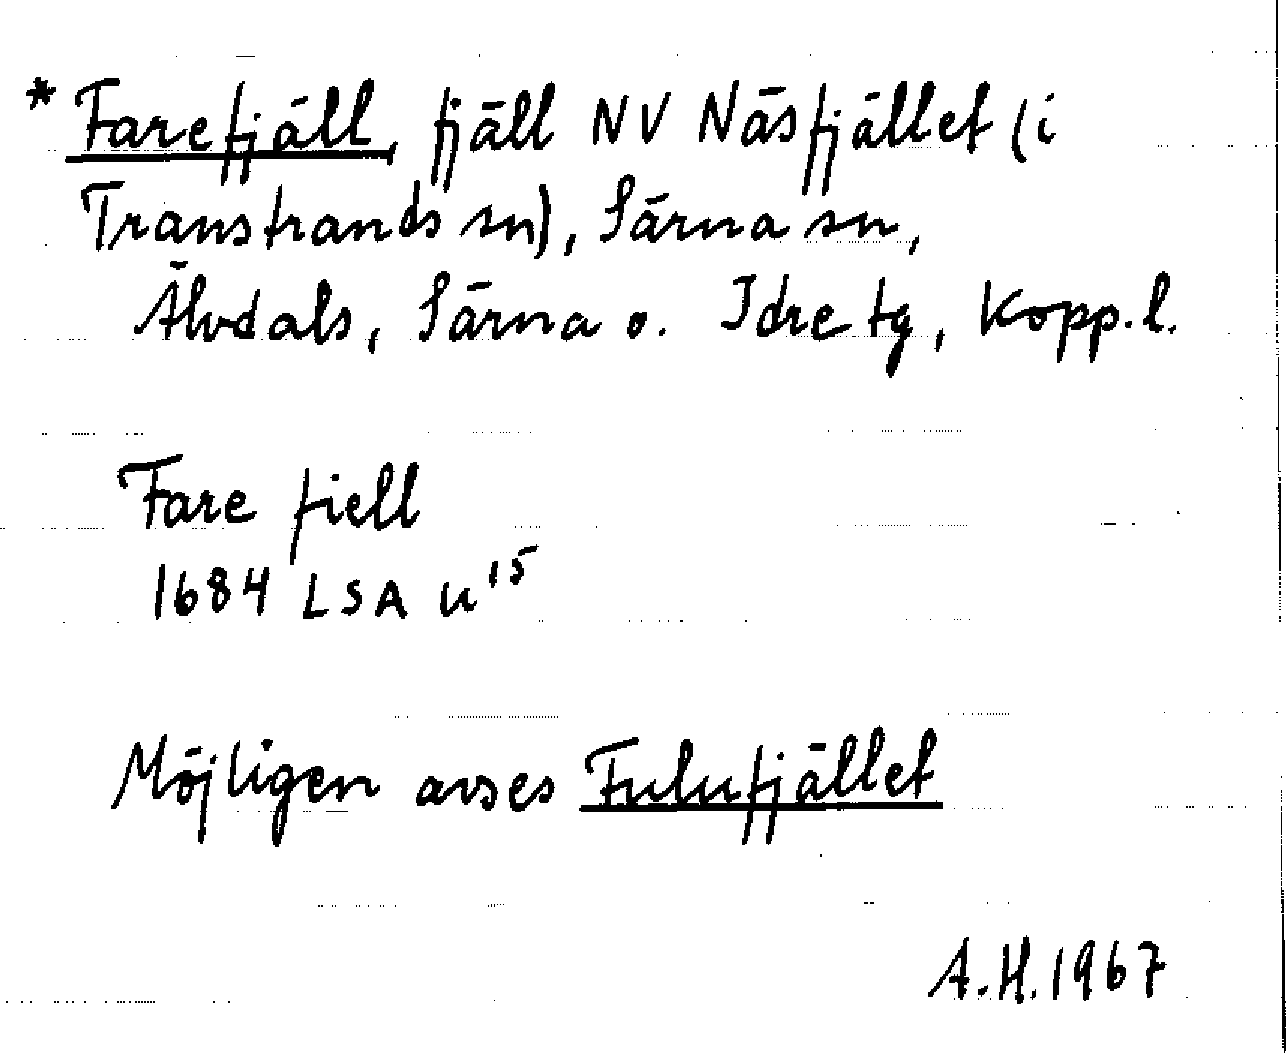 * Farefjäll, fjäll NV Näsfjället (i
Transtrands sn), Särna sn,
Älvdals, Särna o. Idre tg, Kopp. l.
Fare fiell
1684 LSA U 15
Möjligen avses Fulufjället
A.H. 1967